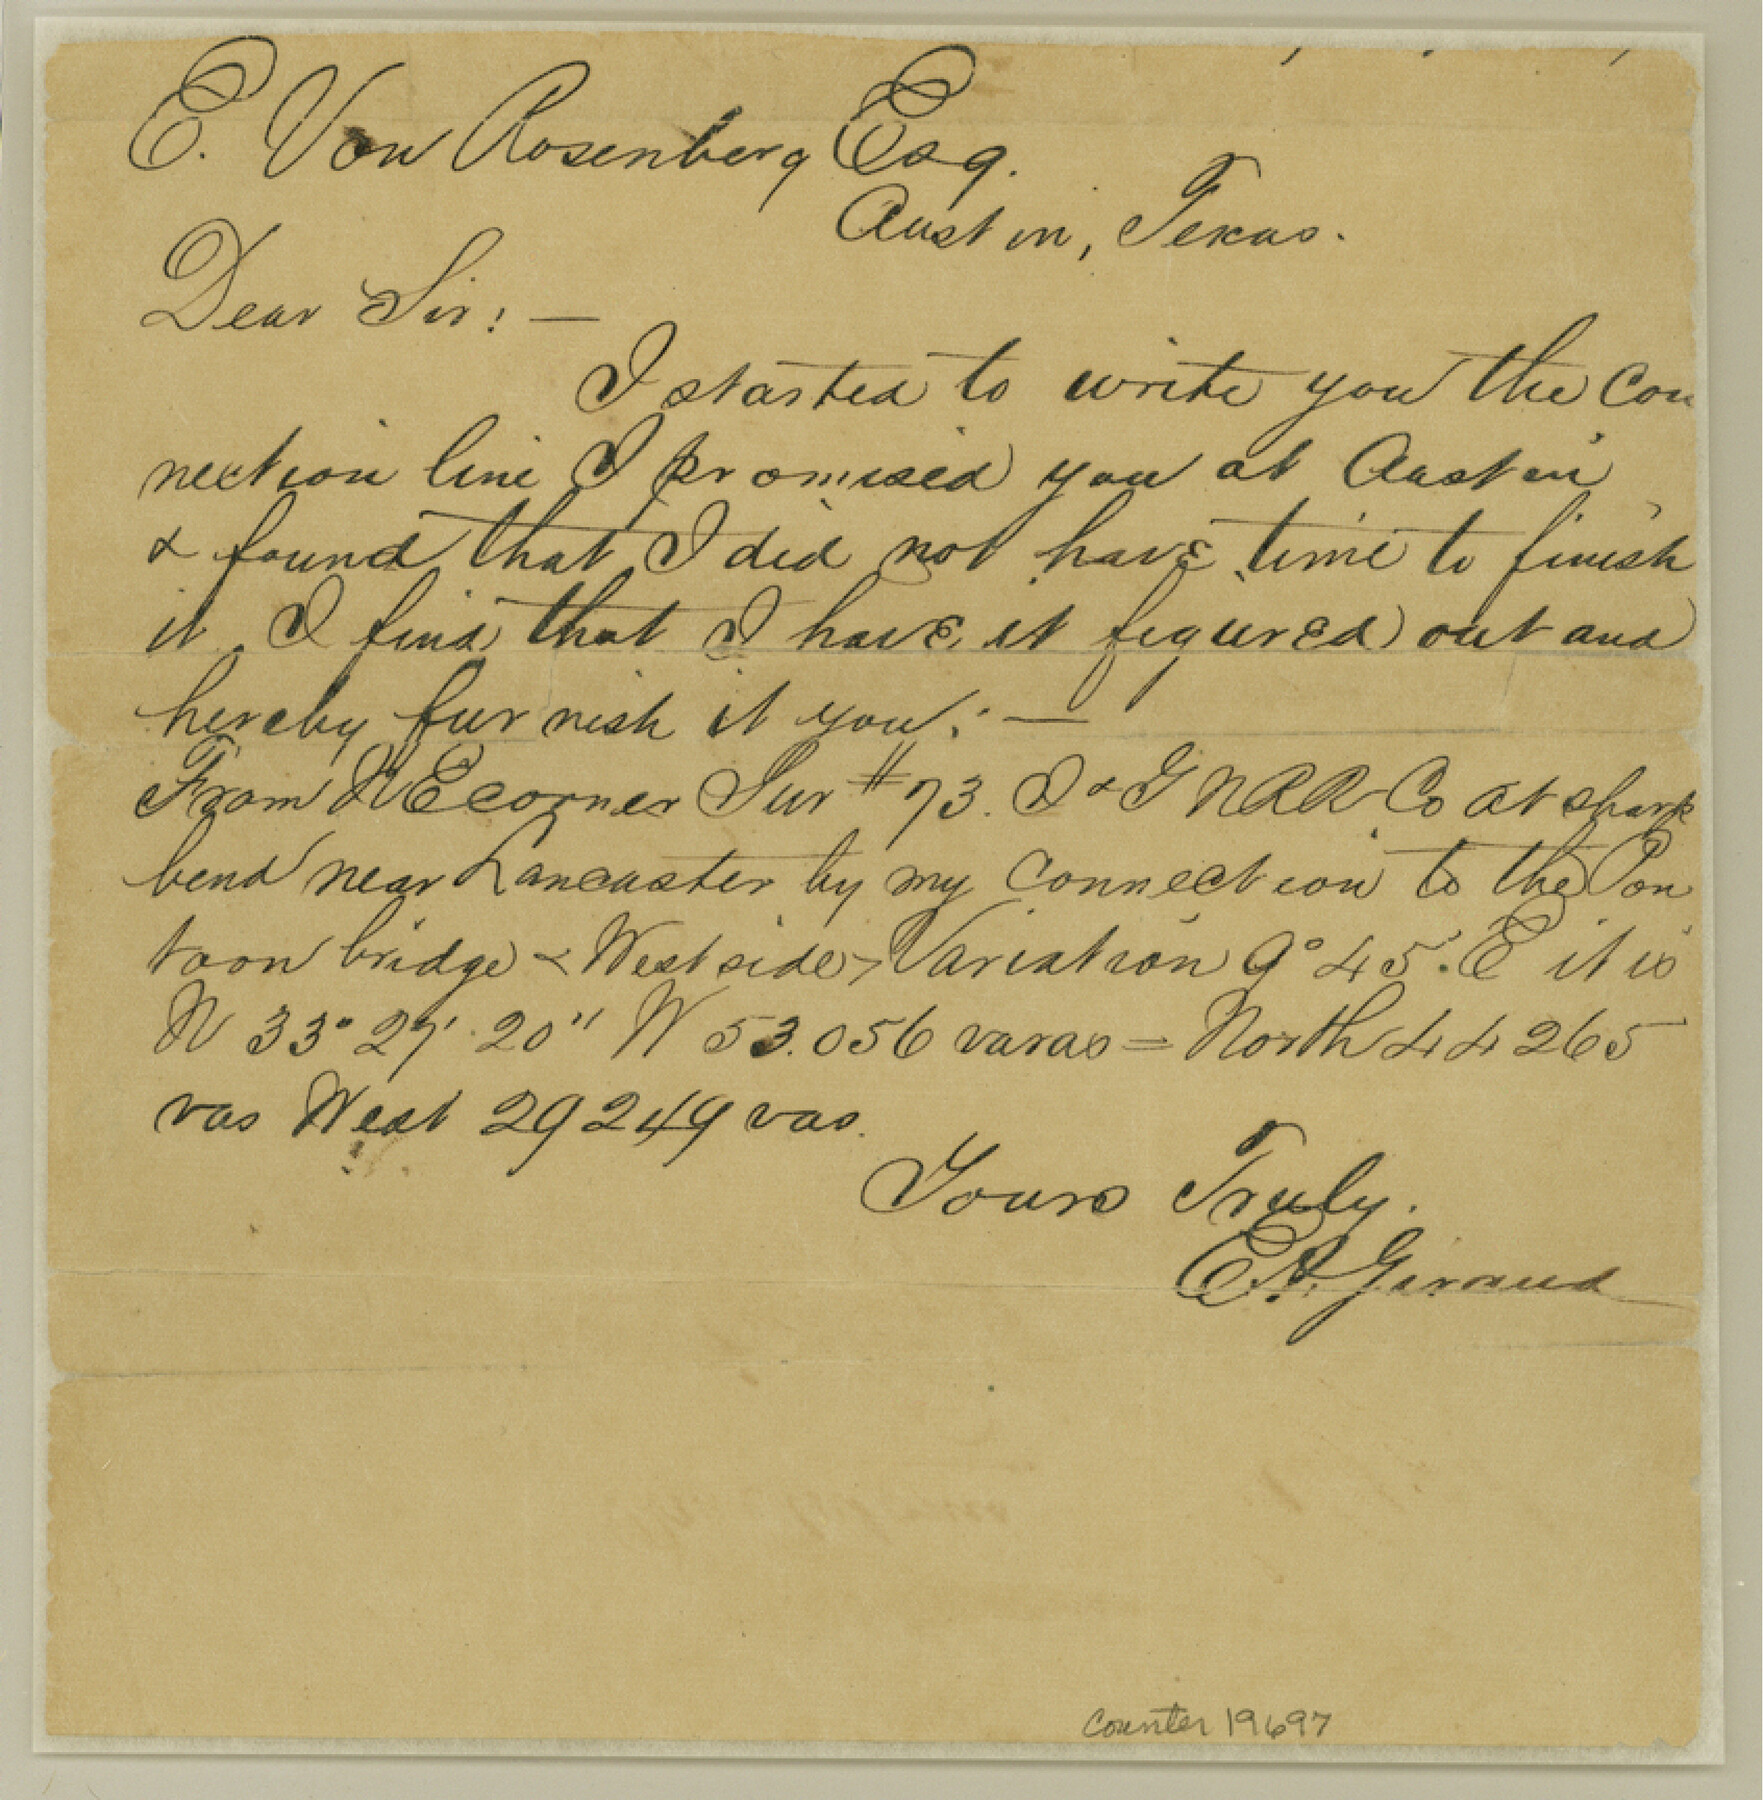 E. Von Rosenberg Esq.
Austin, Texas.
Dear Sir: —
I started to write you the Con
nection line I promised you at Austin
& found that I did not have time to finish
it. I find that I have it figured out and
hereby furnish it you: —
From NE corner Sur #73. I & G N RR Co at sharp
bend near Lancaster by my connection to the Pon
toon bridge < West side > Variation 9° 45' E it is
N 33° 27' 20" W 53.056 varas = North 44265
vas West 29249 vas.
Yours Truly.
E. A. Giraud
Counter 19697